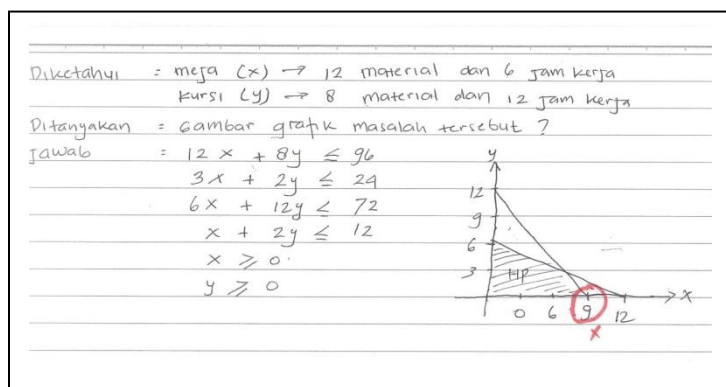 Diketahui = meja (x) → 12 material dan 6 jam kerja
kursi (y) → 8 material dan 12 jam kerja
Ditanyakan = Gambar grafik masalah tersebut ?
Jawab : 12x + 8y ≤ 96
3x + 2y ≤ 24
6x + 12y ≤ 72
x + 2y ≤ 12
x ≥ 0
y ≥ 0
y
12
9
6
3
HP
0 6 9 12
x
x